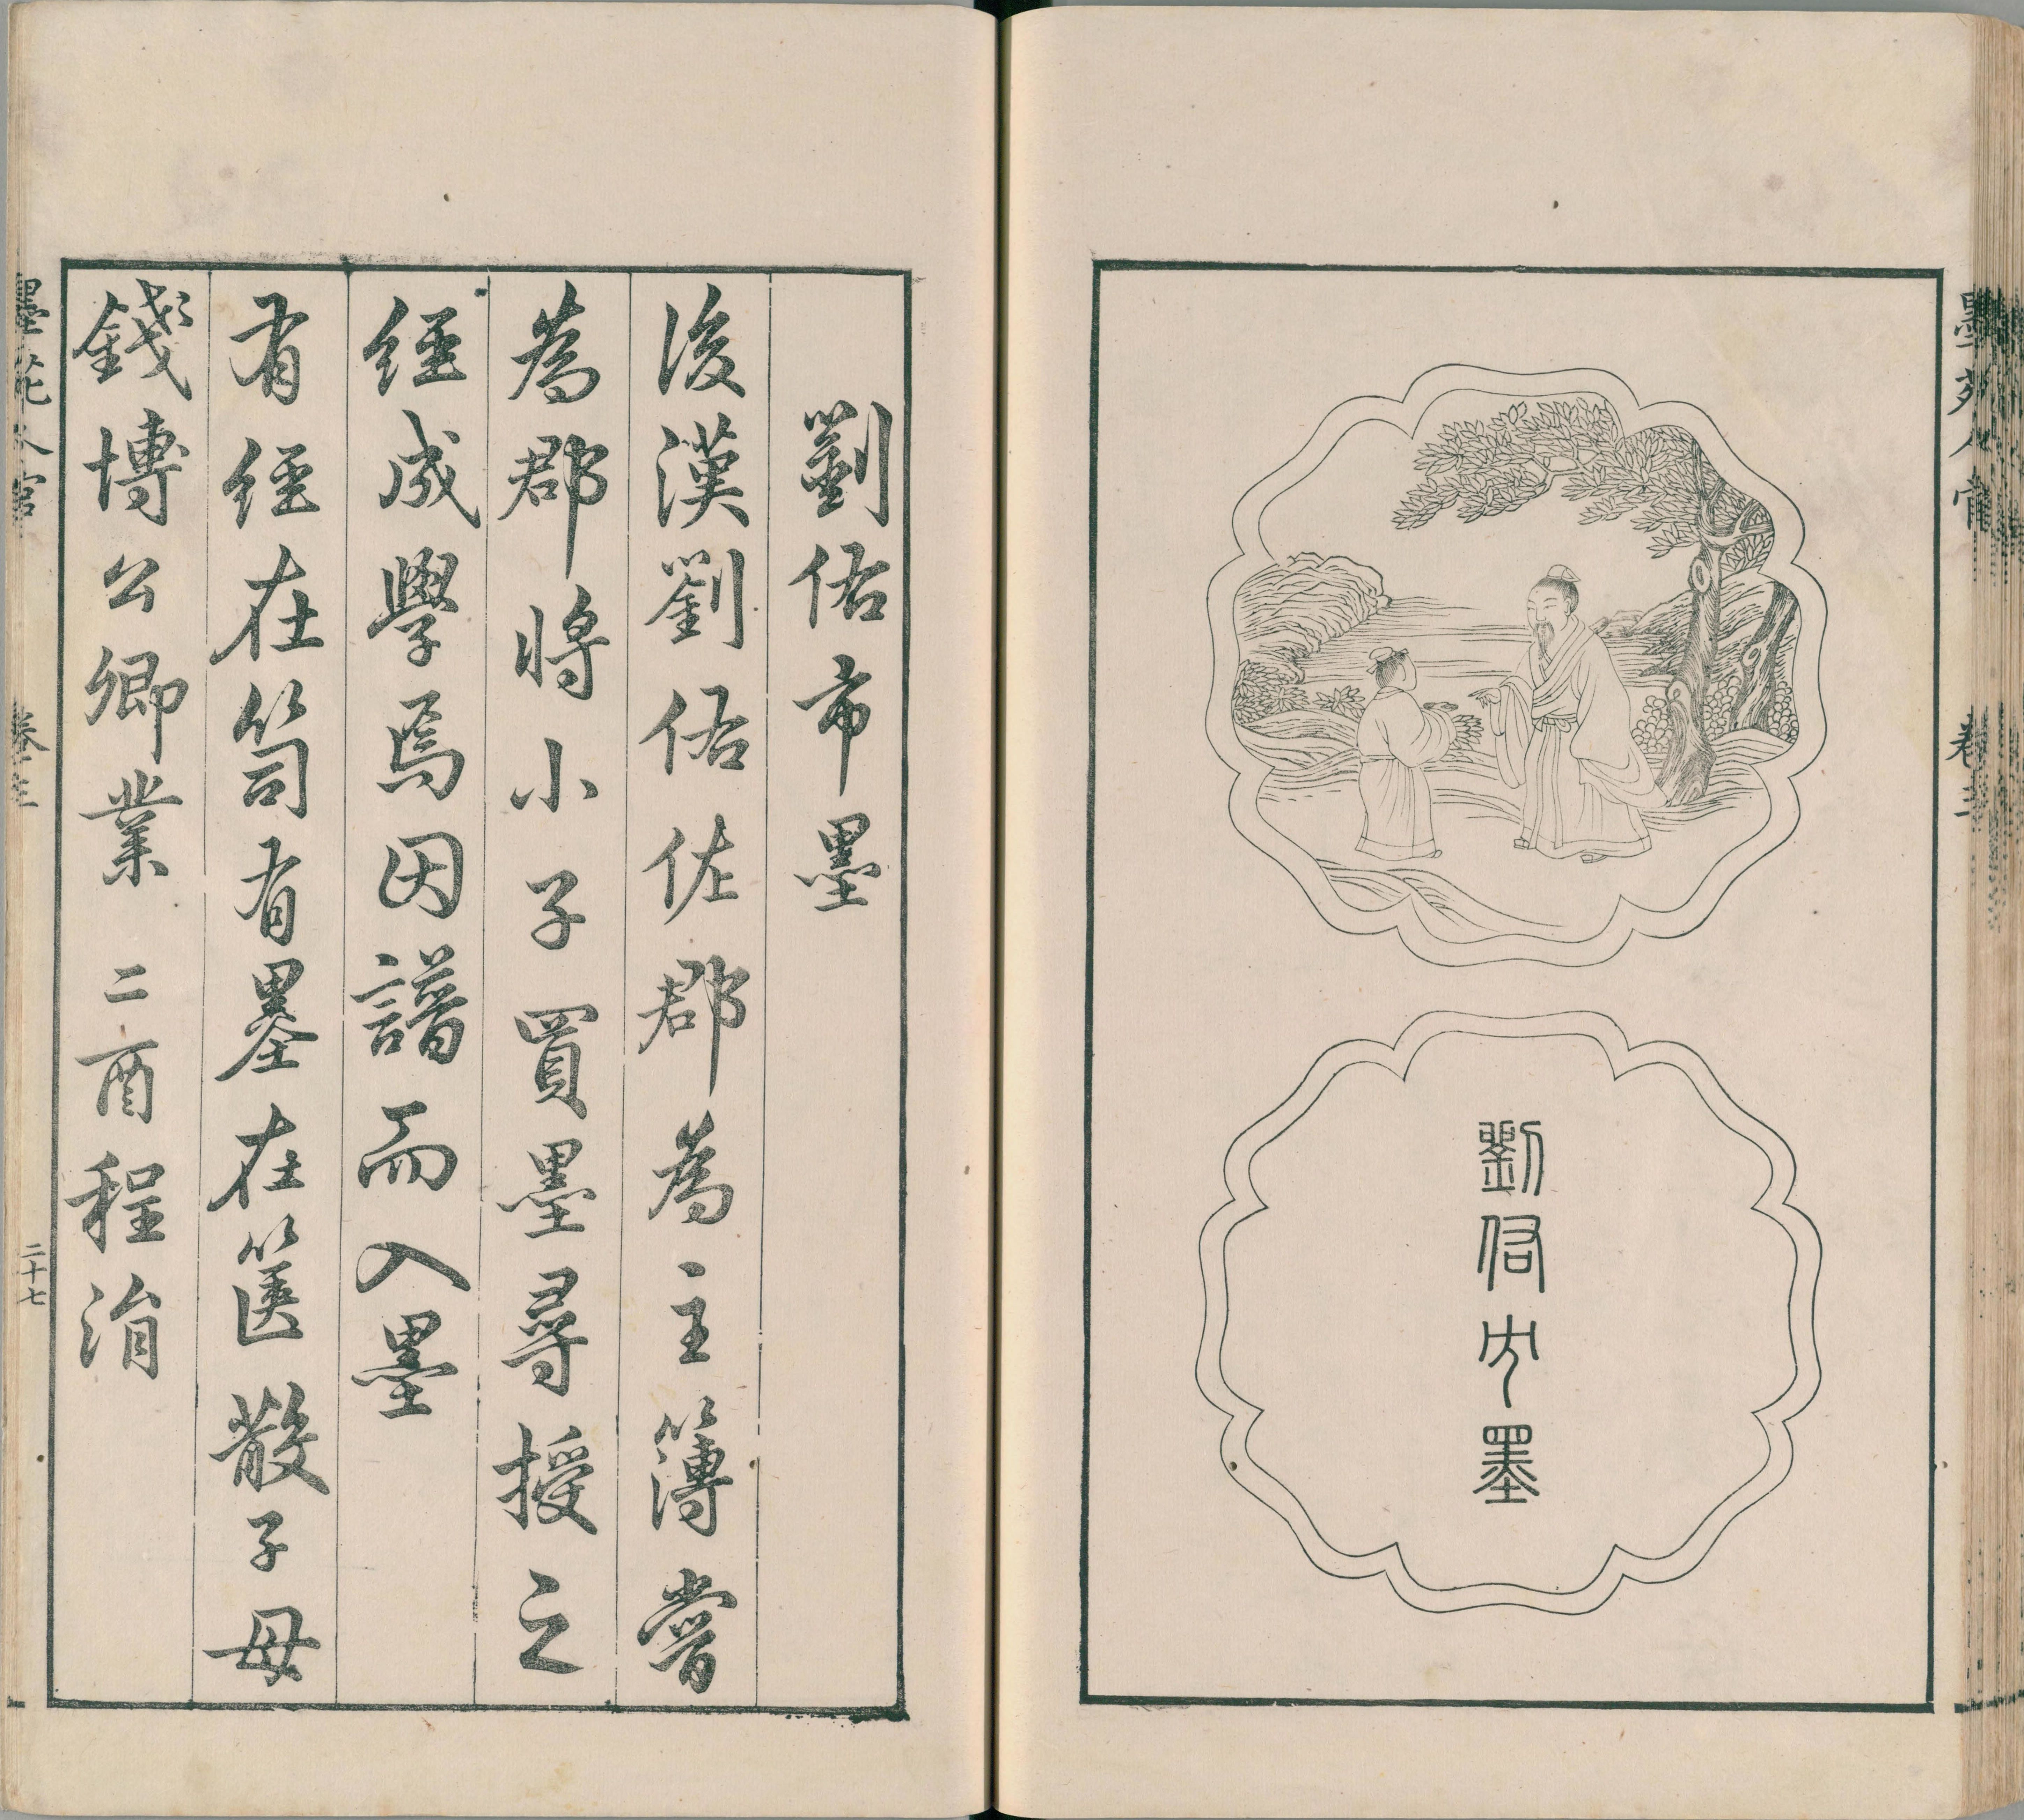 墨苑人官 卷三
劉佑市墨
劉佑市墨
後漢劉佑佐郡為主簿嘗
為郡將小子買墨尋授之
經成學焉因譜而入墨
有經在笥有墨在篋散子母
錢博公卿業 二酉程涓
墨苑人官 卷三 二十七